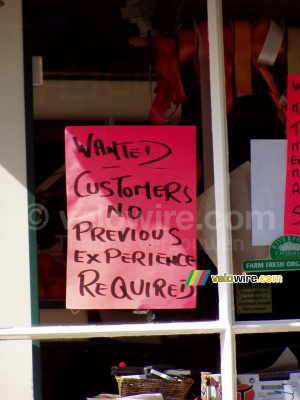 WANTED
CUSTOMERS
NO
PREVIOUS
EXPERIENCE
REQUIRED
© velowire.com
velowire.com
FARM FRESH ORG